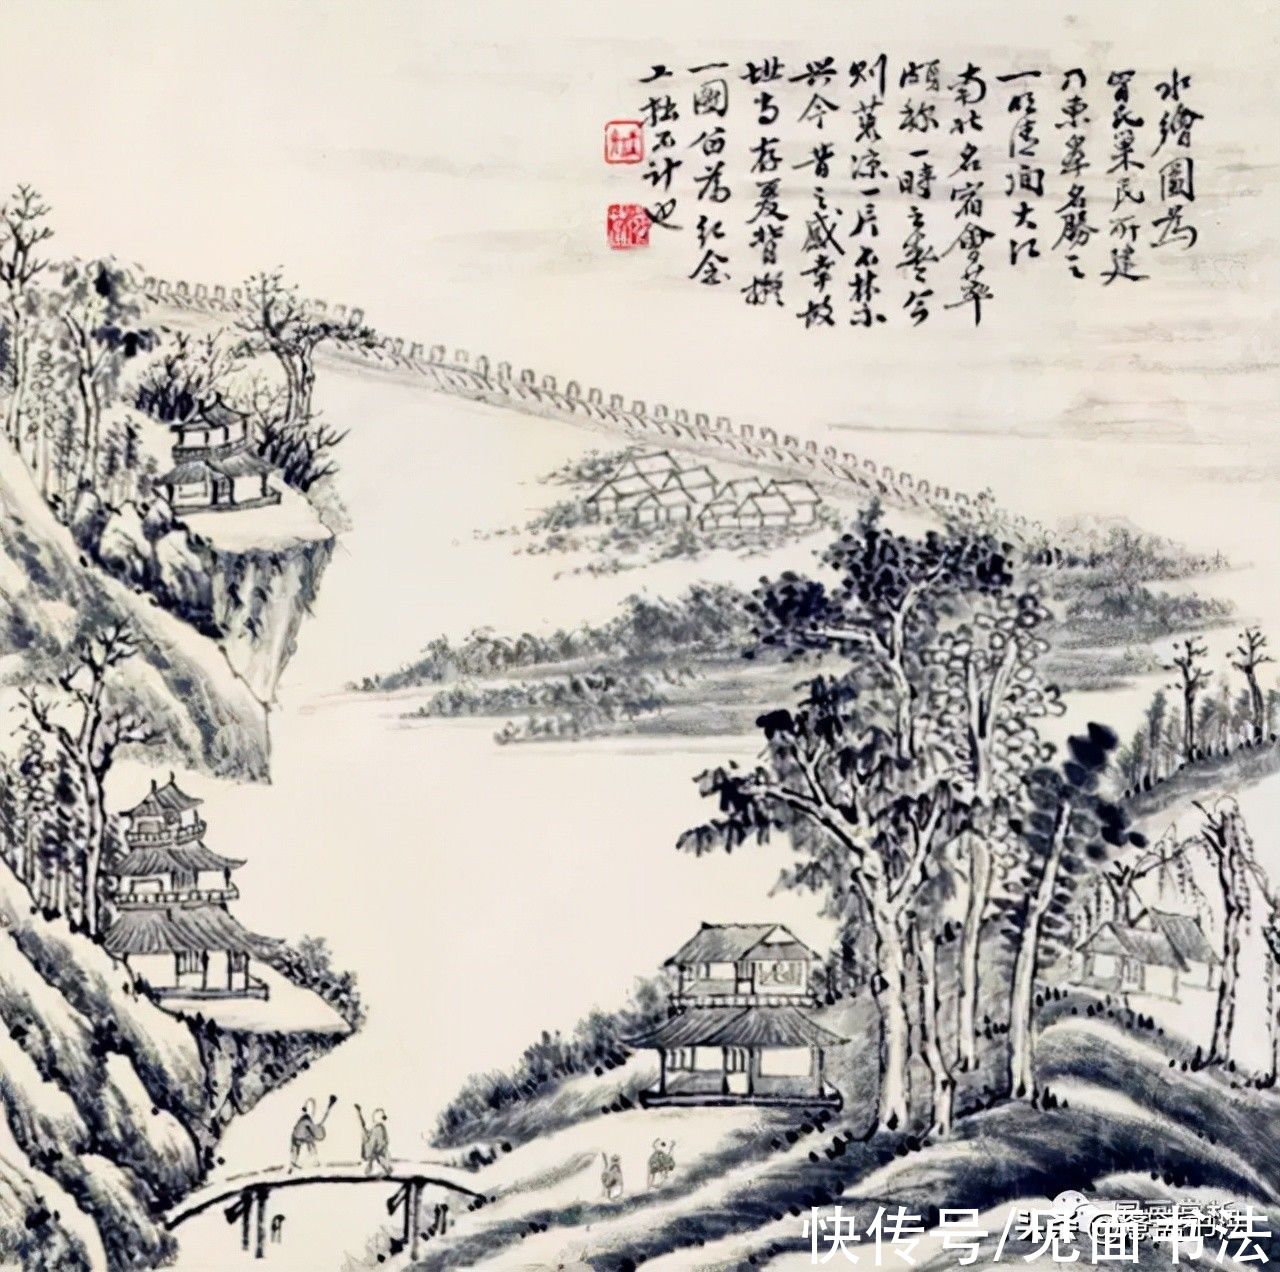 水繪園為
冒氏巢民所建
乃東皋名勝之
一明清间大江
南北名宿會萃
頗極一時之盛今
則荒凉一片不禁
興今昔之感幸故
址尚存爰背擬
一圖留為紀念
工拙不計也
快传号/见面书法